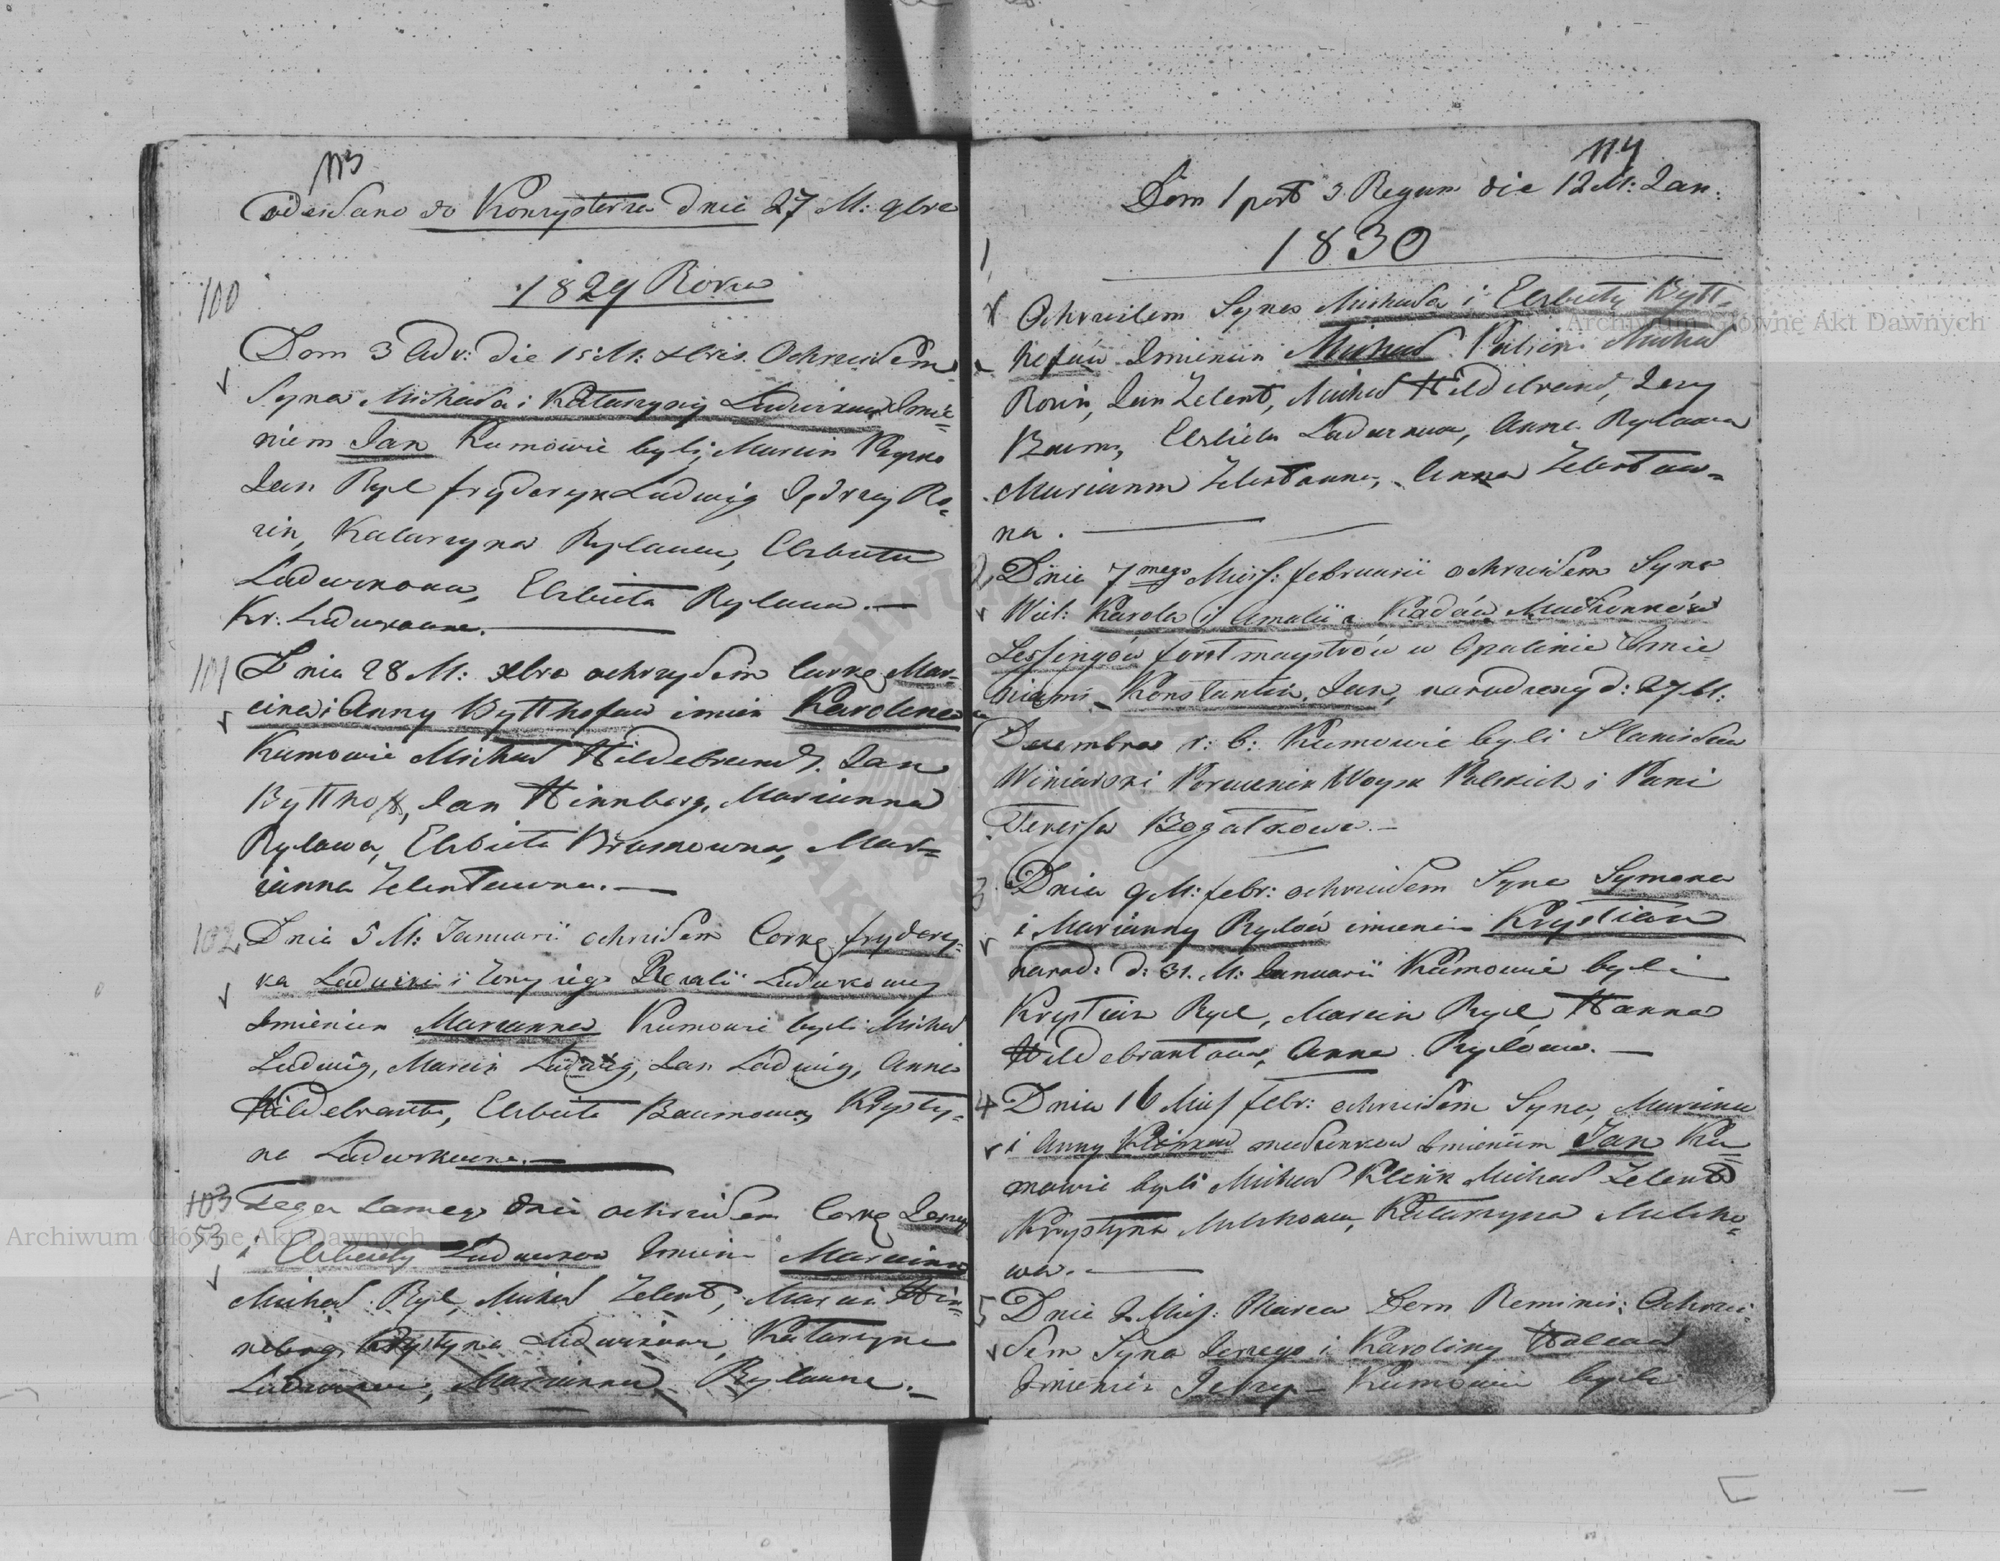 113
odesłano do Konsystorza dnia 27 M: 9bra
1829 Roku
100
Dom 3 Adv: die 15 M: Xbris. Ochrzciłem
Syna Michała i Katarzyny Ludwików Imie=
niem Jan Kumowie byli Marcin
Jan Ryl fryderyk Ludwig Jędrzey Ro=
rin, Katarzyna Rylowa, Elzbieta
Ludwikowa, Elzbieta Rylowa.—
Kr. Ludwikowna.
101 Dnia 28 M: Xbra ochrzciłem Corkę Mar=
cina i Anny Bytthofów imien Karolina
Kumowie Michał Hildebrand, Jan
Bytthof, Jan Hinnberg, Marianna
Rylowa, Elzbieta Braumowna, Mar=
ianna Zelentowna.—
102 Dnia 5 M: Januarii ochrzciłem Corkę frydery=
ka Ludwiki i żony iego Rozalii Ludwikowey
Imieniem Marianna Kumowie byli Michał
Ludwig, Marcin Ludwig, Jan Ludwig, Anna
Hildebrantowa, Elzbieta Baumowa, Krysty=
na Ludwikowna.—
103 Tego samego dnia ochrzciłem Corkę Jerzego
53 i Elzbiety Ludwików Imien Marianna
Michał Ryl, Michał Zelent, Marcin Hin=
neberg, Krystyna Ludwikowa, Katarzyna
Ludwikowa, Marianna Rylowna.—
114
Dom 1 post 3 Regum die 12 M: Jan:
1830
1
Ochrzciłem Syna Michała i Elzbiety Bytt=
hofów Imieniem Michał. Michał
Rorin, Jan Zelent, Michał Hildebrand, Jerzy
Baum, Elzbieta Ludwikowa, Anna Rylowa
Marianna Zelentowna, Anna Zelentow=
na.
2, Dnia 7mego Mies: februarii ochrzciłem Syna
Wiel: Karola i Amalii z Małżonków
Lessingów forstmaystrów w Opalinie Imie=
niami Konstantin, Jan, narodzony d: 27 M:
Decembra r: b: Kumowie byli Stanisław
Winiarski Porucznik Woysk Polskich i Pani
Teressa Bogatkowa.—
3. Dnia 9 M: febr: ochrzciłem Syna Symona
i Marianny Rylów imieniem Krystian
narod: d: 31. M: Januarii Kumowie byli
Krystian Ryl, Marcin Ryl Hanna
Hildebrantowa, Anna Rylowa.—
4 Dnia 16 Mies febr: ochrzciłem Syna, Marcina
i Anny Kleinków małżonków Imieniem Jan Ku=
mowie byli Michał Kleink Michał Zelent
Krystyna Milkowa, Katarzyna Milko=
wa.
5 Dnia Mies: Marca Dom Reminis: Ochrzci=
łem Syna Jerzego i Karoliny
Imieniem Jerzy— Kumowie byli
Archiwum Główne Akt Dawnych
Archiwum Główne Akt Dawnych